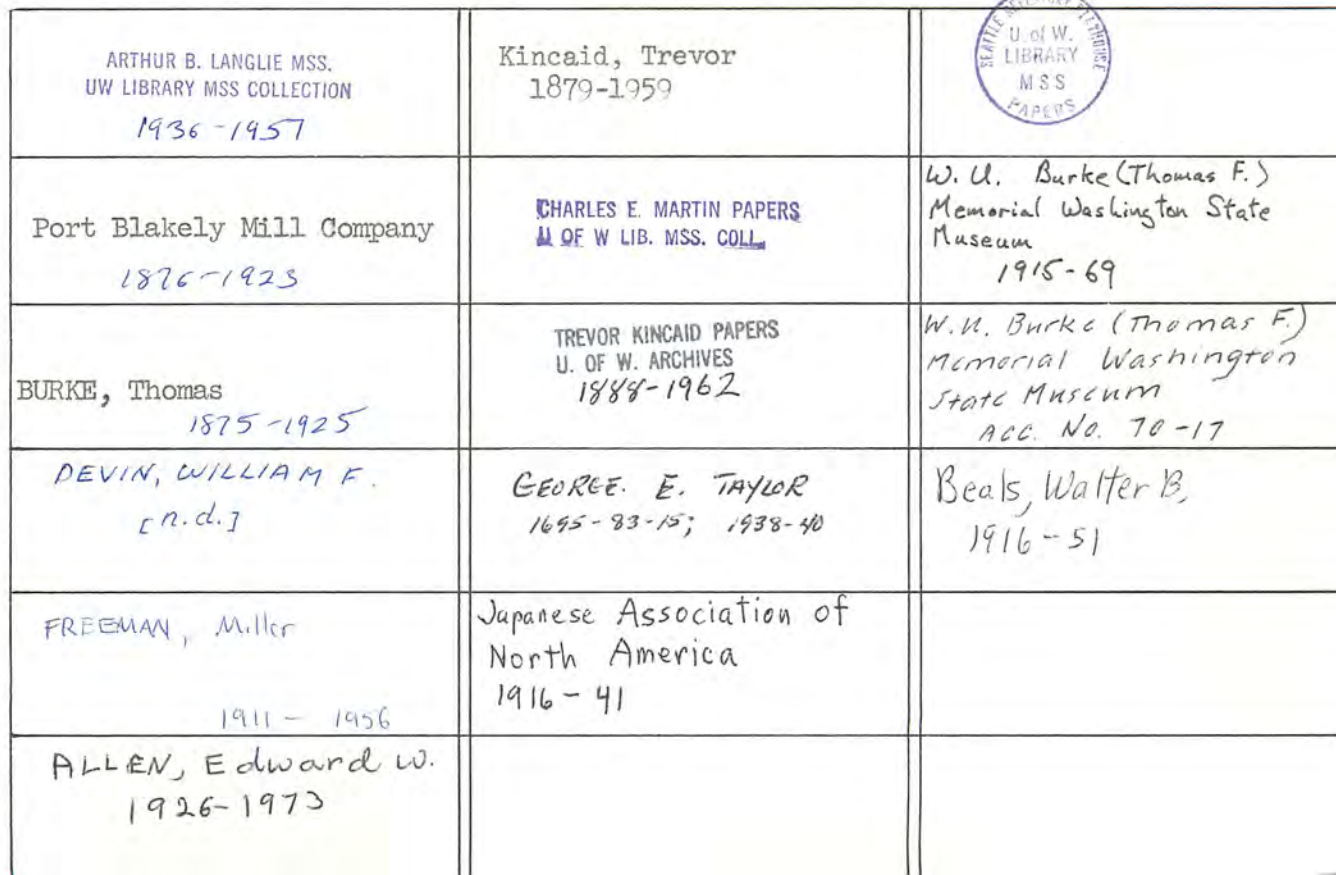 ARTHUR B. LANGLIE MSS.
UW LIBRARY MSS COLLECTION
1936-1957
Kincaid, Trevor
1879-1959
SEATTLE
U. of W.
LIBRARY
MSS
PAPERS
Port Blakely Mill Company
1876-1923
CHARLES E. MARTIN PAPERS
U OF W LIB. MSS. COLL.
W. U. Burke (Thomas F.)
Memorial Washington State
Museum
1915-69
BURKE, Thomas
1875-1925
TREVOR KINCAID PAPERS
U. OF W. ARCHIVES
1888-1962
W.U. Burke (Thomas F.)
Memorial Washington
State Museum
ACC. No. 70-17
DEVIN, WILLIAM F.
[n.d.]
GEORGE. E. TAYLOR
1695-83-15; 1938-40
Beals, Walter B.
1916-51
FREEMAN, Miller
1911 - 1956
Japanese Association of
North America
1916-41
ALLEN, Edward W.
1926-1973